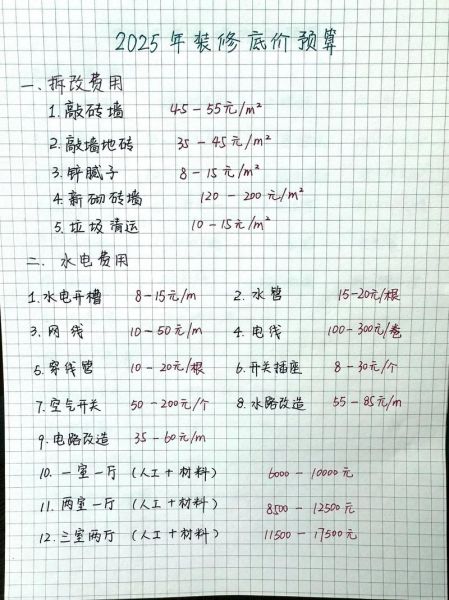 2025年装修底价预算
一、拆改费用
1.敲砖墙 45-55元/m²
2.敲墙地砖 35-45元/m²
3.锌腻子 8-15元/m²
4.新砌砖墙 120-200元/m²
5.垃圾清运 10-15元/m²
二、水电费用
1.水电开槽 8-15元/m 2.水管 15-20元/根
3.网线 10-50元/m 4.电线 100-300元/卷
5.穿线管 10-20元/根 6.开关插座 8-30元/个
7.空气开关 50-200元/个 8.水路改造 55-85元/m
9.电路改造 35-60元/m
10.一室一厅(人工+材料) 6000-10000元
11.两室一厅(人工+材料) 8500-12500元
12.三室两厅(人工+材料) 11500-17500元